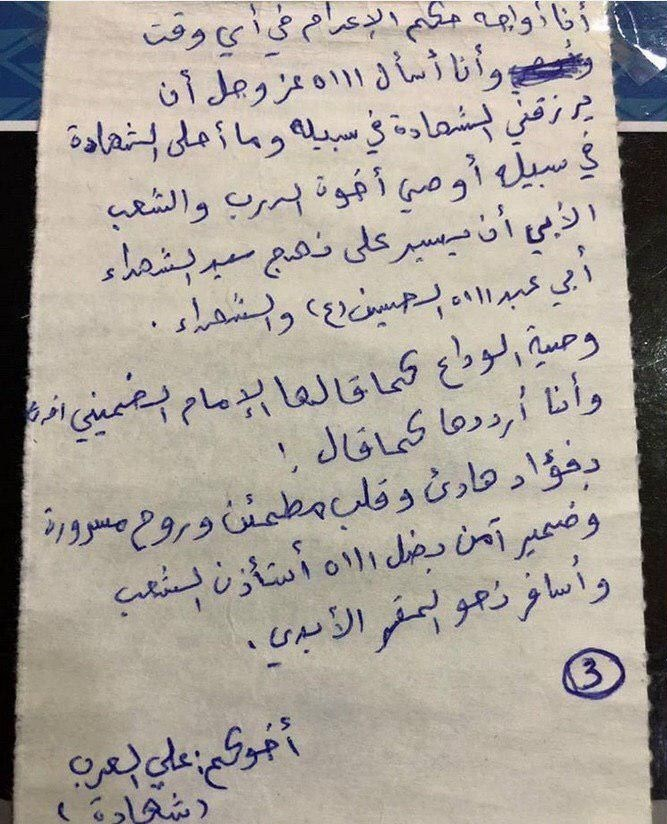 أنا أواجه حكم الإعدام في أي وقت
وأنا أسأل الله عز وجل أن
يرزقني الشهادة في سبيله وما أحلى الشهادة
في سبيله أوصي أخوة الدرب والشعب
الأبي أن يسير على نهج سيد الشهداء
أبي عبد الله الحسين (ع) والشهداء .
وصية الوداع كما قالها الإمام الخميني
وأنا أرددها كما قال :
بفؤاد هادئ وقلب مطمئن وروح مسرورة
وضمير آمن بفضل الله أستأذن الشعب
وأسافر نحو المقر الأبدي .
3
أخوكم: علي العرب
(شهادة)